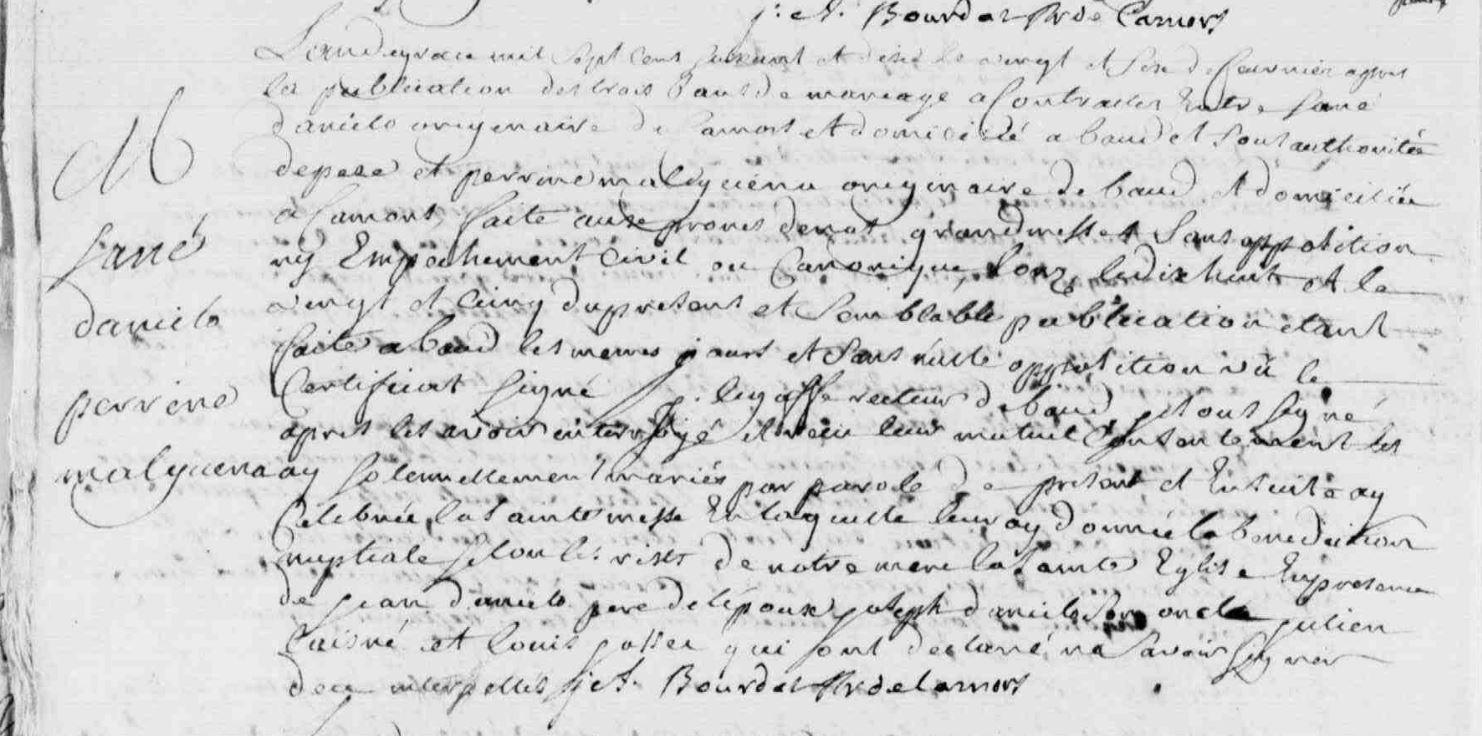 j: et. Bourdat Prde Camors
L'an de grace mil sept cent soixant et dixe le vingt et sixe de feuvrier apres
les publication des trois bans de mariage a Contracter Entre
danielo originaire de Camors et domicilié a baud et Sous authorité
de pere et perrine malquenu originaire de baud et domiciliée
a Camors, faite aux prones de nos grandmesses Sans opposition
ny Empechement civil ou Canonique, l'onze, le dixhuit et le
vingt et cinq du present et Semblable publication etant
faite a baud les memes jours et Sans nulle opposition vû le
Certificat Signé legoffe recteur de baud, je sous signé
apres les avoir interrogé et recu leur mutuel Consentement les
ay solennellement mariés par parole de present et Ensuite ay
Célébrée la Sainte messe En laquelle leur ay donnée la benediction
nuptiale selon les rists de notre mere la Sainte Eglise En presence
de jean danielo pere de l'époux, joseph danielo Son oncle julien
et louis qui ont declaré ne Savoir Signer
de ce interpellés j et. Bourdat Prde Camors
M
danielo
perrine
malquenu